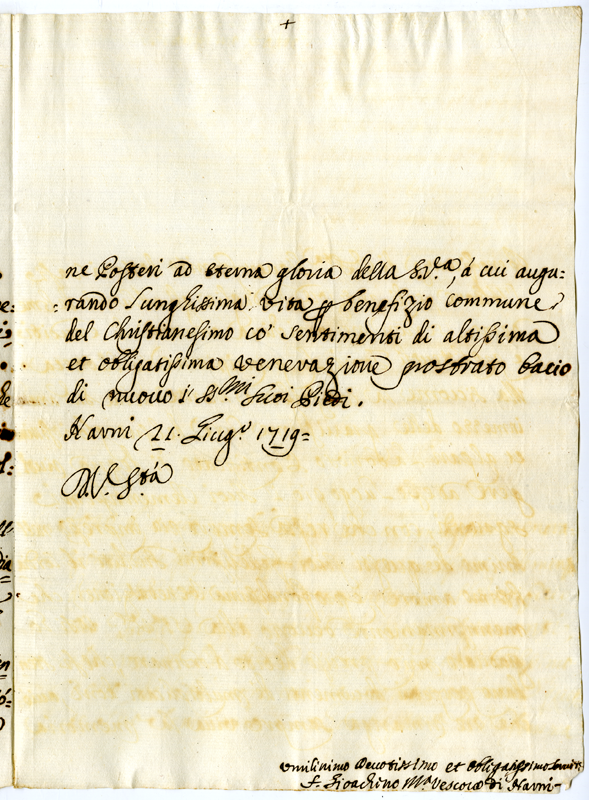 +
ne Posteri ad eterna gloria della S.V.a, á cui augu=
=rando lunghissima vita p benefizio commune
del Christianesimo co' sentimenti di altissima
et obligatissima venerazione prostrato bacio
di nuovo i SSmi suoi Piedi.
Narni 21. Giug.o 1719=
D.V. S.tá
Umilissimo Devotissimo et obligatissimo
F. Gioachino M.a Vescovo di Narni